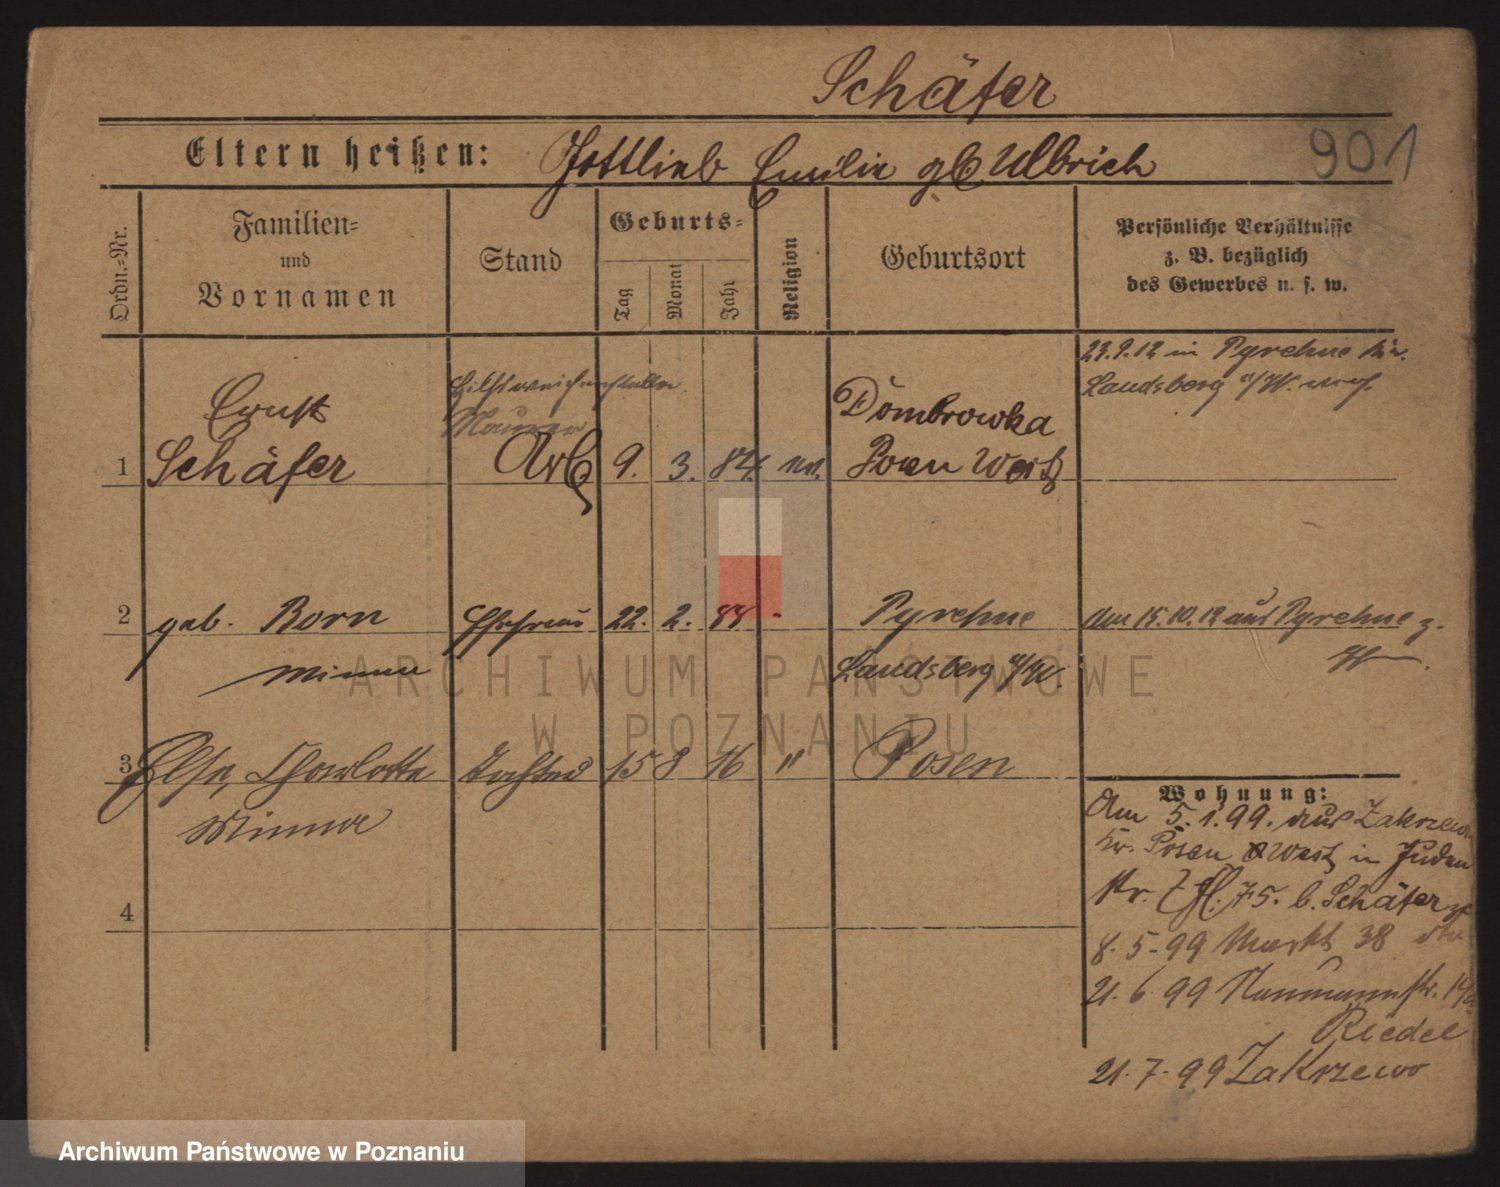 Schäfer
901
Eltern heißen: Gottlieb Emilie gb Ulbrich
Ordn.-Nr.
Familien-
und
Vornamen
Stand
Geburts-
Tag
Monat
Jahr
Religion
Geburtsort
Persönliche Verhältnisse
z. B. bezüglich
des Gewerbes u. s. w.
23.9.12 in Pyrehne Kr.
Landsberg a/W. verh.
Hilfsweichensteller
Maurer
1 Ernst
Schäfer
Arb
9. 3. 84. ev.
Dombrowka
Posen West
2 geb. Born
Minna
Ehefrau
22. 2. 88
Pyrehne
Landsberg a/W.
Am 15.10.12 aus Pyrehne z.
3 Else, Charlotte
Minna
Tochter
15 8 16 "
Posen
4
Wohnung:
Am 5.1.99. aus Zakrzewo
Kr. Posen West in Juden
str. 75. b. Schäfer
8.5.99 Markt 38
21.6.99 Naumannstr. 14a
Riedel
21.7.99 Zakrzewo
ARCHIWUM PAŃSTWOWE
W POZNANIU
Archiwum Państwowe w Poznaniu